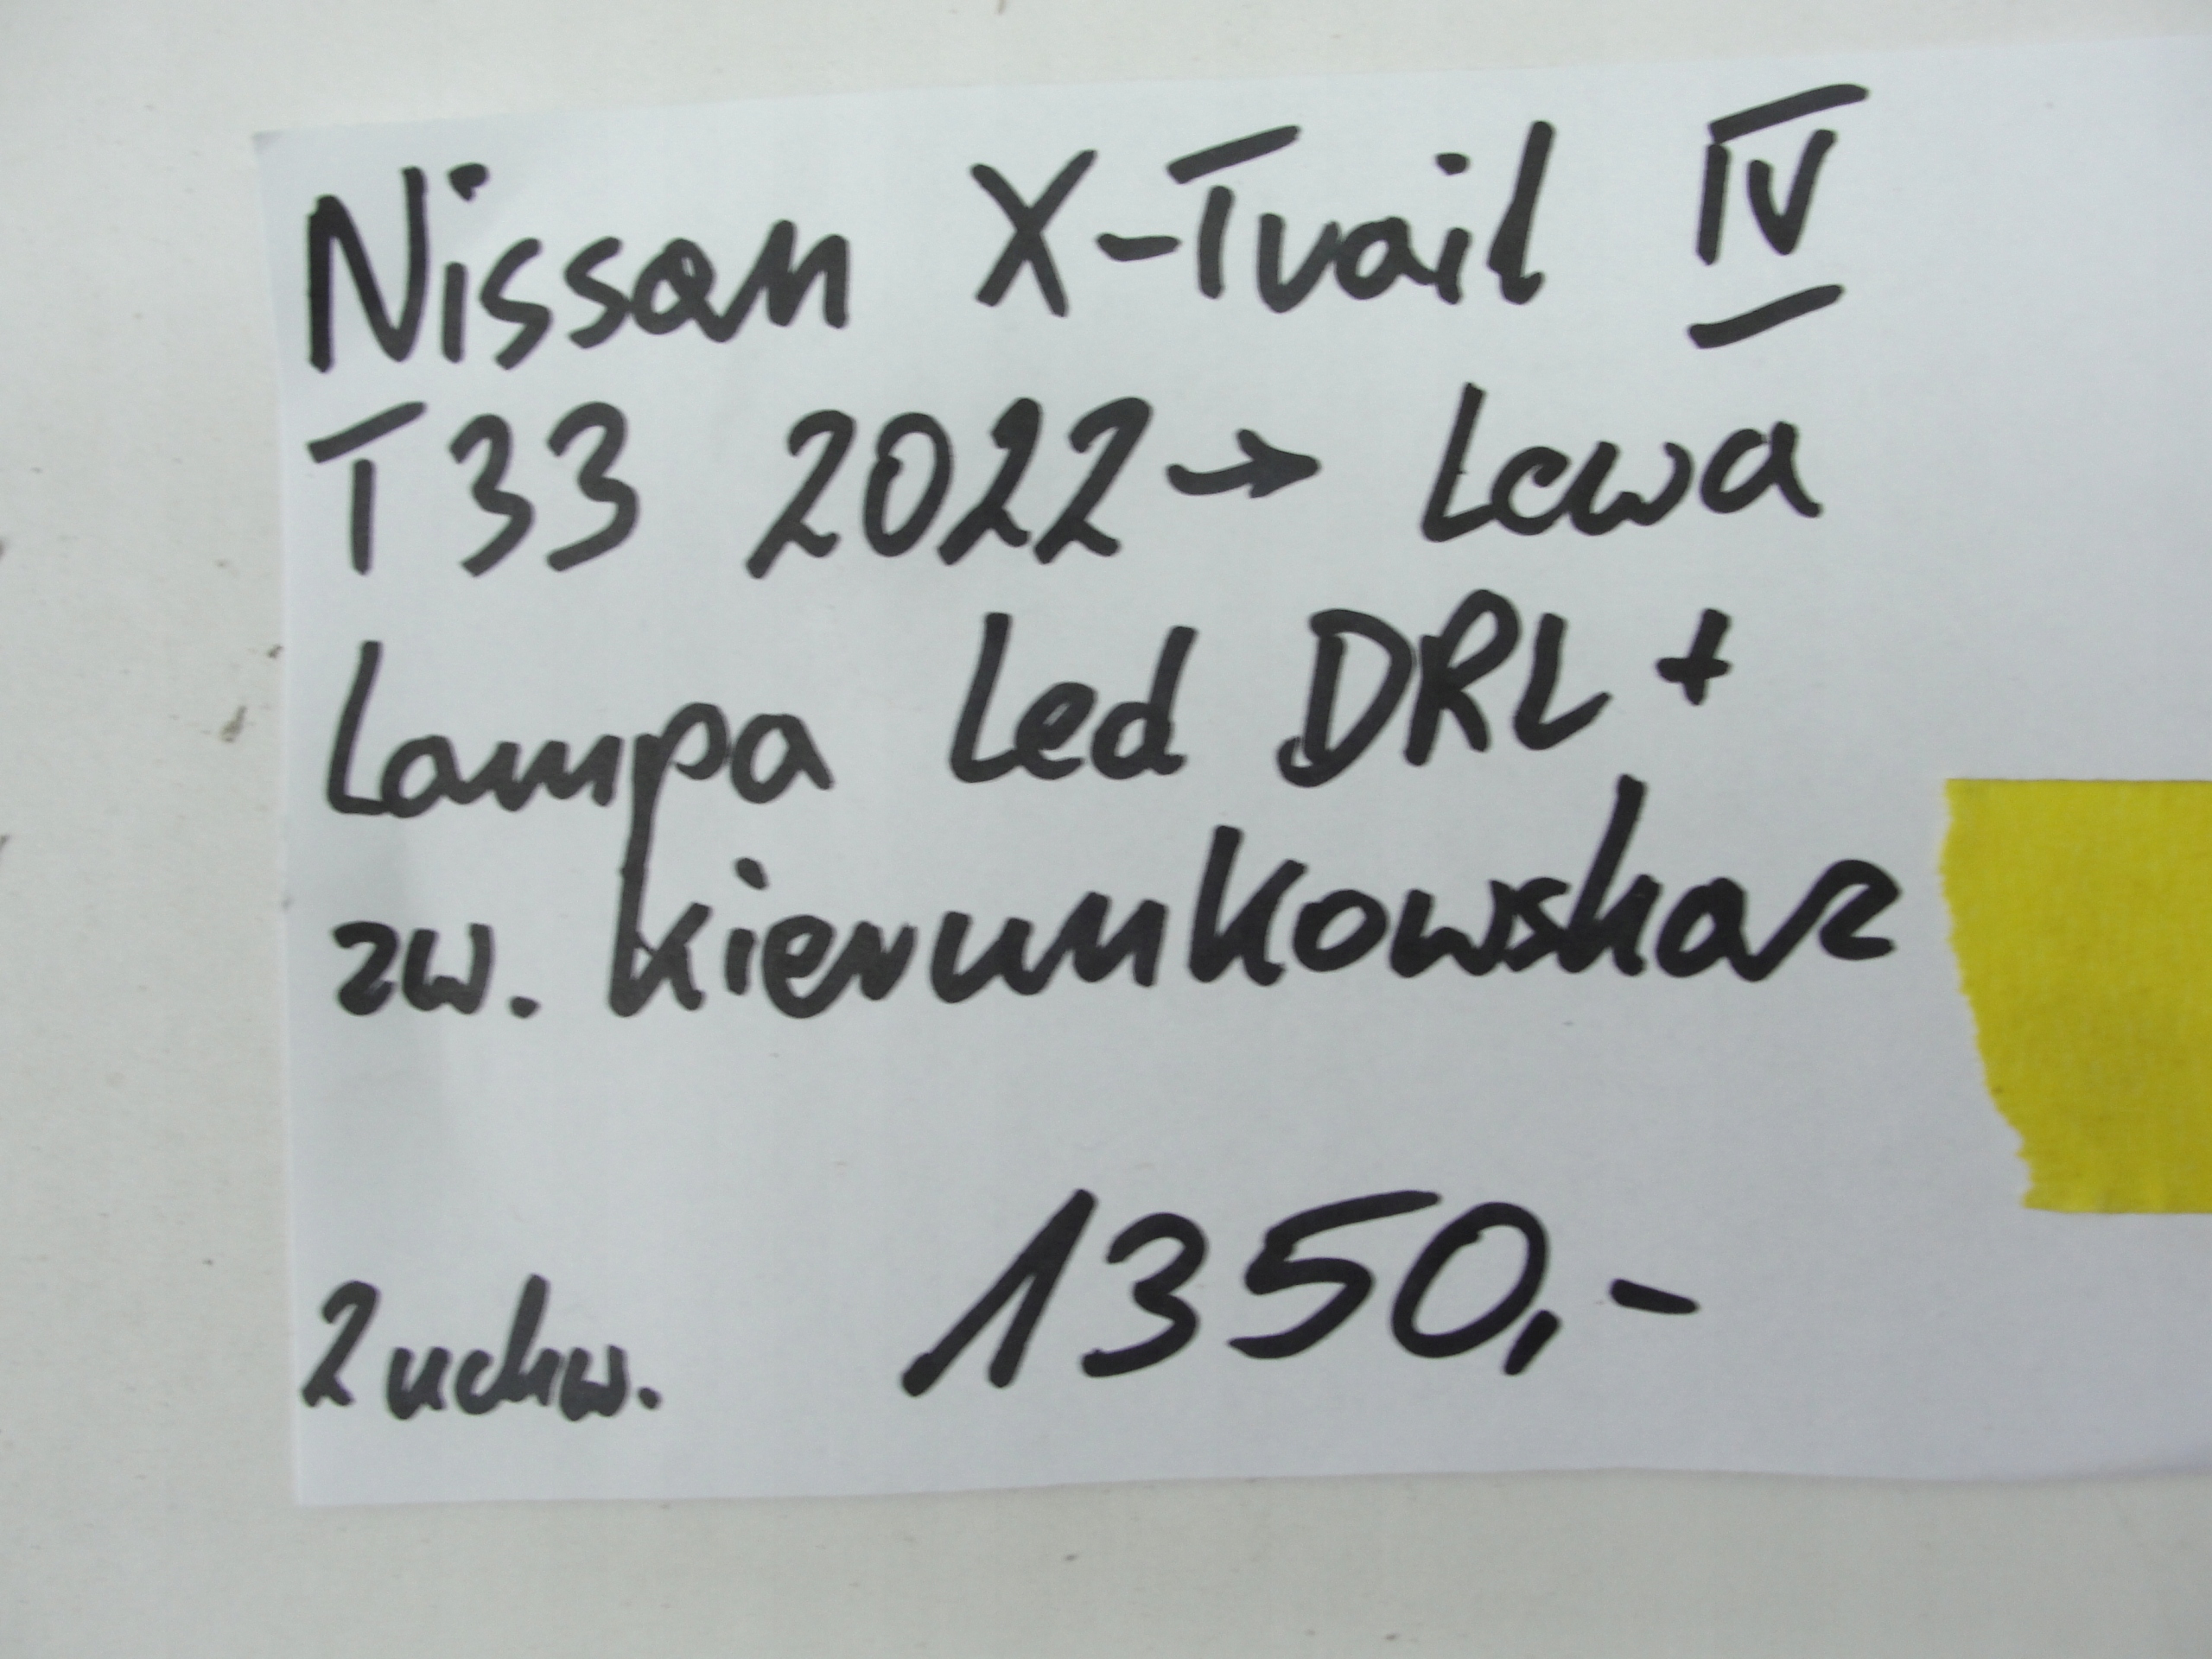 Nissan X-Trail IV
T33 2022→ Lewa
Lampa Led DRL +
zw. kierunkowskaz
1350,-
2 uchw.